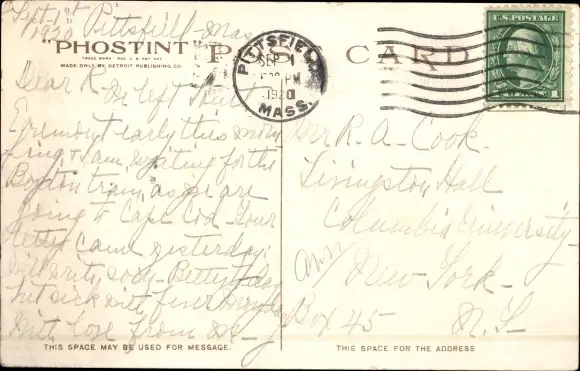 Sept. 1st Pittsfield - Mass
1920
"PHOSTINT" POST CARD
TRADE MARK REG. U.S. PAT. OFF.
MADE ONLY BY DETROIT PUBLISHING CO.
PITTSFIELD
SEP 1
PM
1920
MASS.
U.S. POSTAGE
1 CENTS 1
Dear R -
We left South
Egremont early this morn
ing & I am waiting for the
Boston train, as we are
going to Cape Cod - Your
letter came yesterday.
Will write soon - Betty
but sick with fever
With love from M -
THIS SPACE MAY BE USED FOR MESSAGE.
Mr R. A. Cook -
Livingston Hall
Columbia University -
New York -
Box 45 N. Y -
THIS SPACE FOR THE ADDRESS